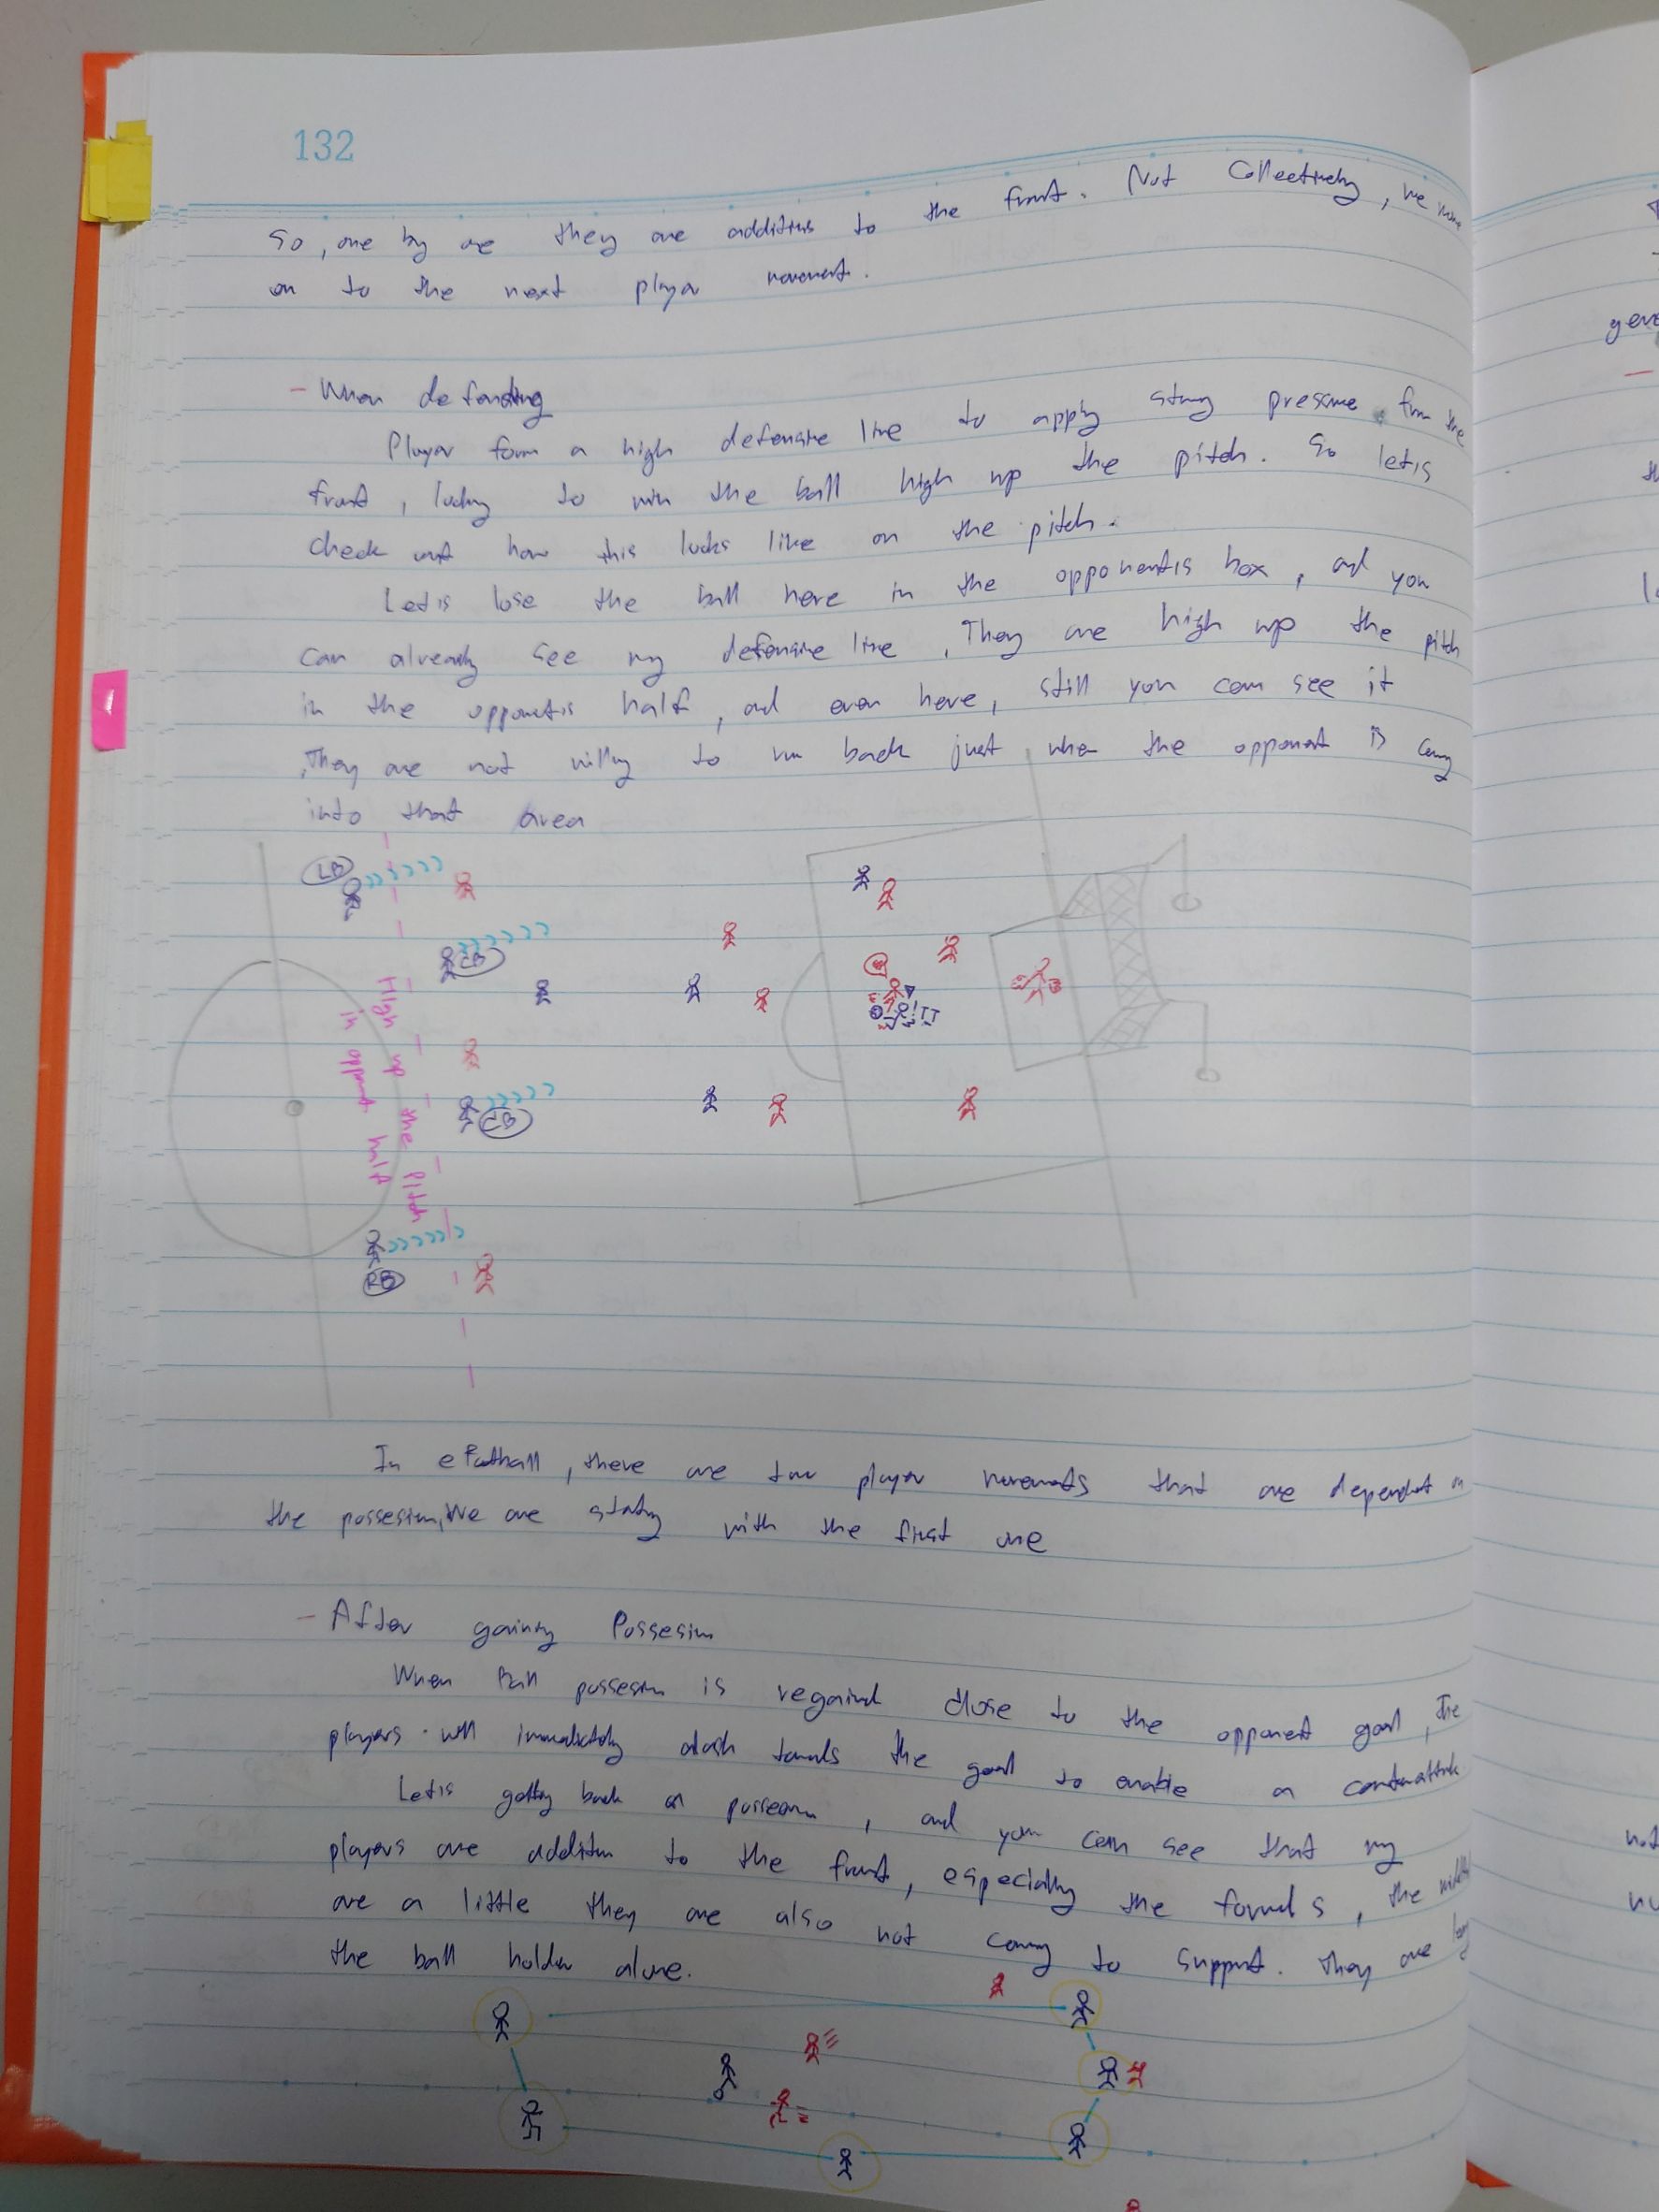 132
So, one by one they are additions to the front. Not Collectively, we move
on to the next player movement.
- When defending
Player form a high defensive line to apply strong pressure from the
front, looking to win the ball high up the pitch. So let's
check out how this looks like on the pitch.
Let's lose the ball here in the opponent's box, and you
can already see my defensive line, They are high up the pitch
in the opponent's half, and even here, still you can see it
, They are not willing to run back just when the opponent is coming
into that area
LB
CB
High up the pitch
in opponent half
CB
RB
In eFootball, there are two player movements that are dependent on
the possession, We are staty with the first one
- After gaining Possesion
When Ball possesion is regaind close to the opponent goal, The
players will immediately dash towards the goal to enable a counterattack
Let's getting back on possession, and you can see that my
players are addition to the front, especially the forwards, the
are a little they are also not coming to support. They are
the ball holder alone.
gene
not